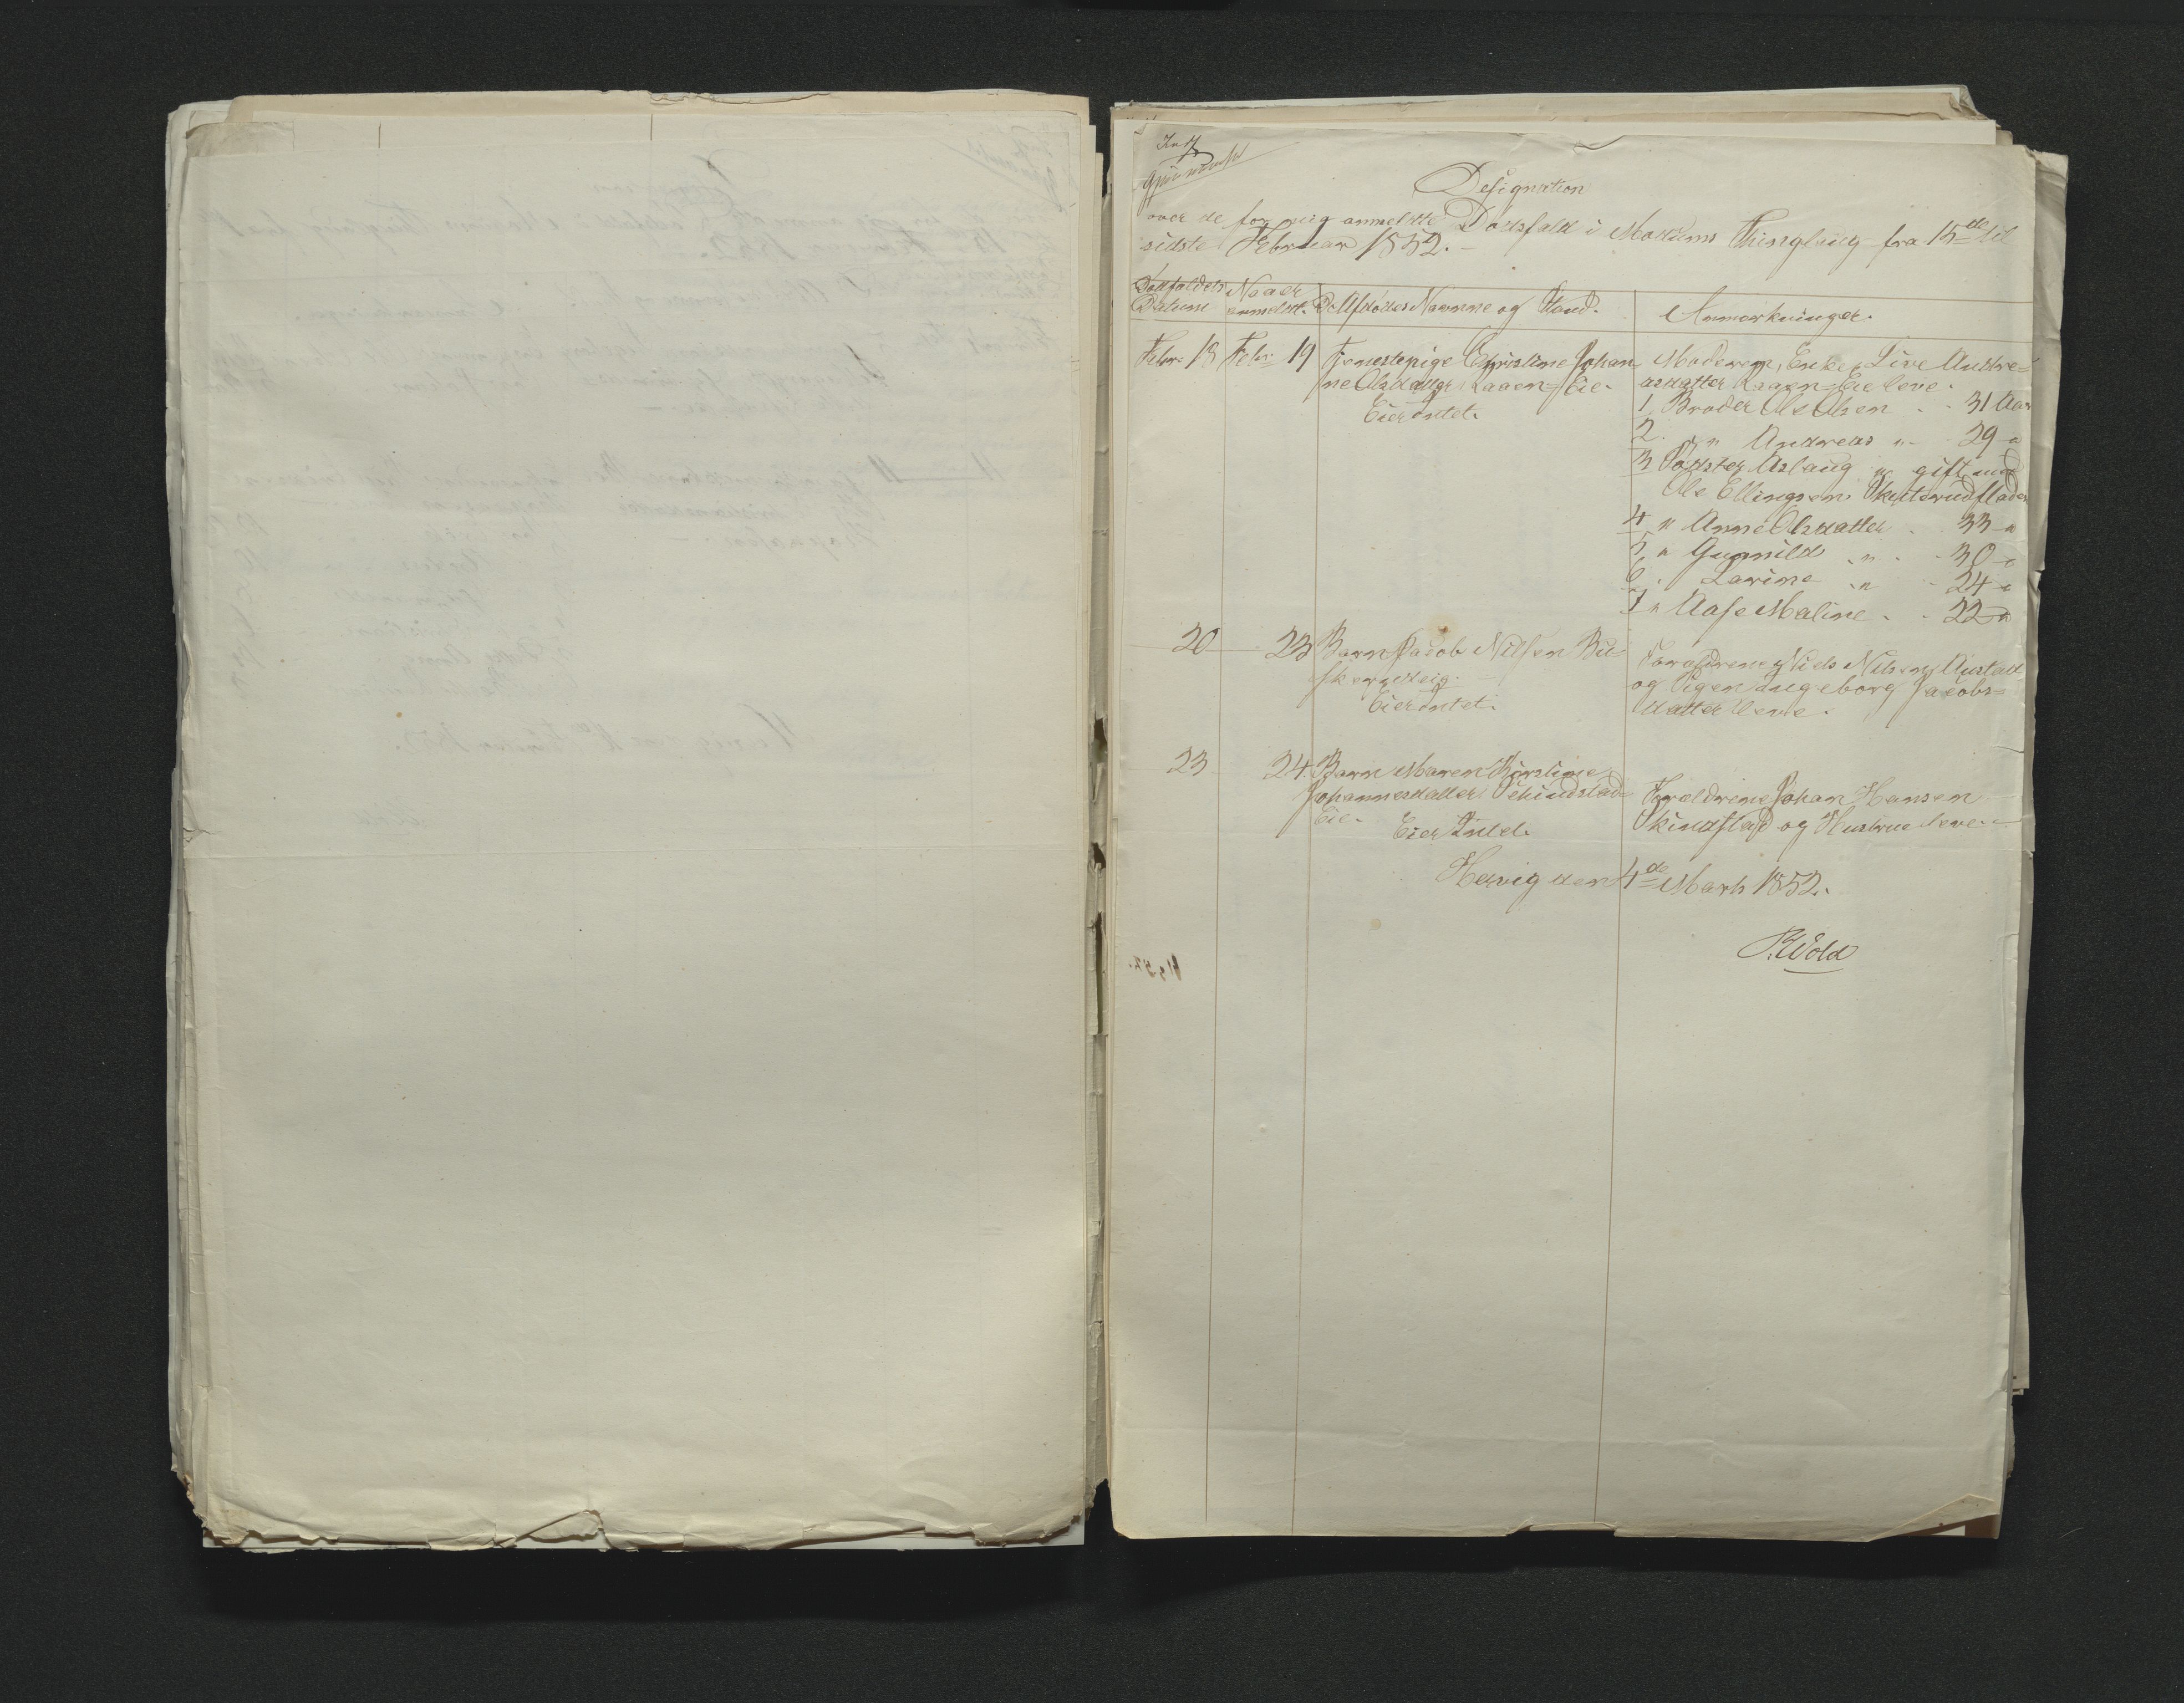 Designation
over de for mig anmeldte Dødsfald i Modums Thinglaug fra 15de til
sidste Februar 1852. -
Dødsfaldets Datum
Naar anmeldt.
D: Afdødes Navne og Stand.
Anmærkninger.
Febr: 13 Febr: 19 Tjenestepige Christine Johan-
ne Olsdatter Kaaen-Eie.
Eier intet.
Moderen, Enke, Live Andre-
asdatter Kaaen-Eie leve.
1, Broder Ole Olsen . . 31 Aar
2. " Andreas " - 29 "
3 Søster Aslaug " gift med
Ole Ellingsen Skutsrudfladen
4 " Anne Olsdatter . 33 "
5, " Gunnild " . 30 "
6 . Larine " - 24 "
7 " Aase Maline . . 22 "
20 23 Barn Jacob Nilsen Bu-
skerudeig. -
Eier intet.
Forældrene Niels Nilsen Austad
og Pigen Ingeborg Jacobs-
datter leve.
23 24. Barn Maren Kirstine
Johannesdatter Skindstad-
Eie.
Eier Intet.
Forældrene Johan Hansen
Skindstad og Hustrue leve. -
Hervig den 4de Marts 1852.
P. Wold